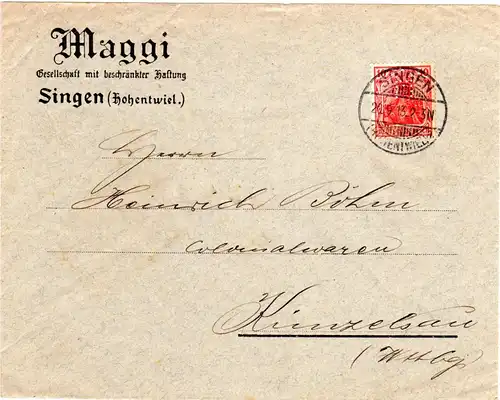 Maggi
Gesellschaft mit beschränkter Haftung
Singen (Hohentwiel.)
10
10
SINGEN
(HOHENTWIEL)
Herrn
Heinrich Böhm
Colonialwaren
Künzelsau
(Wttbg)